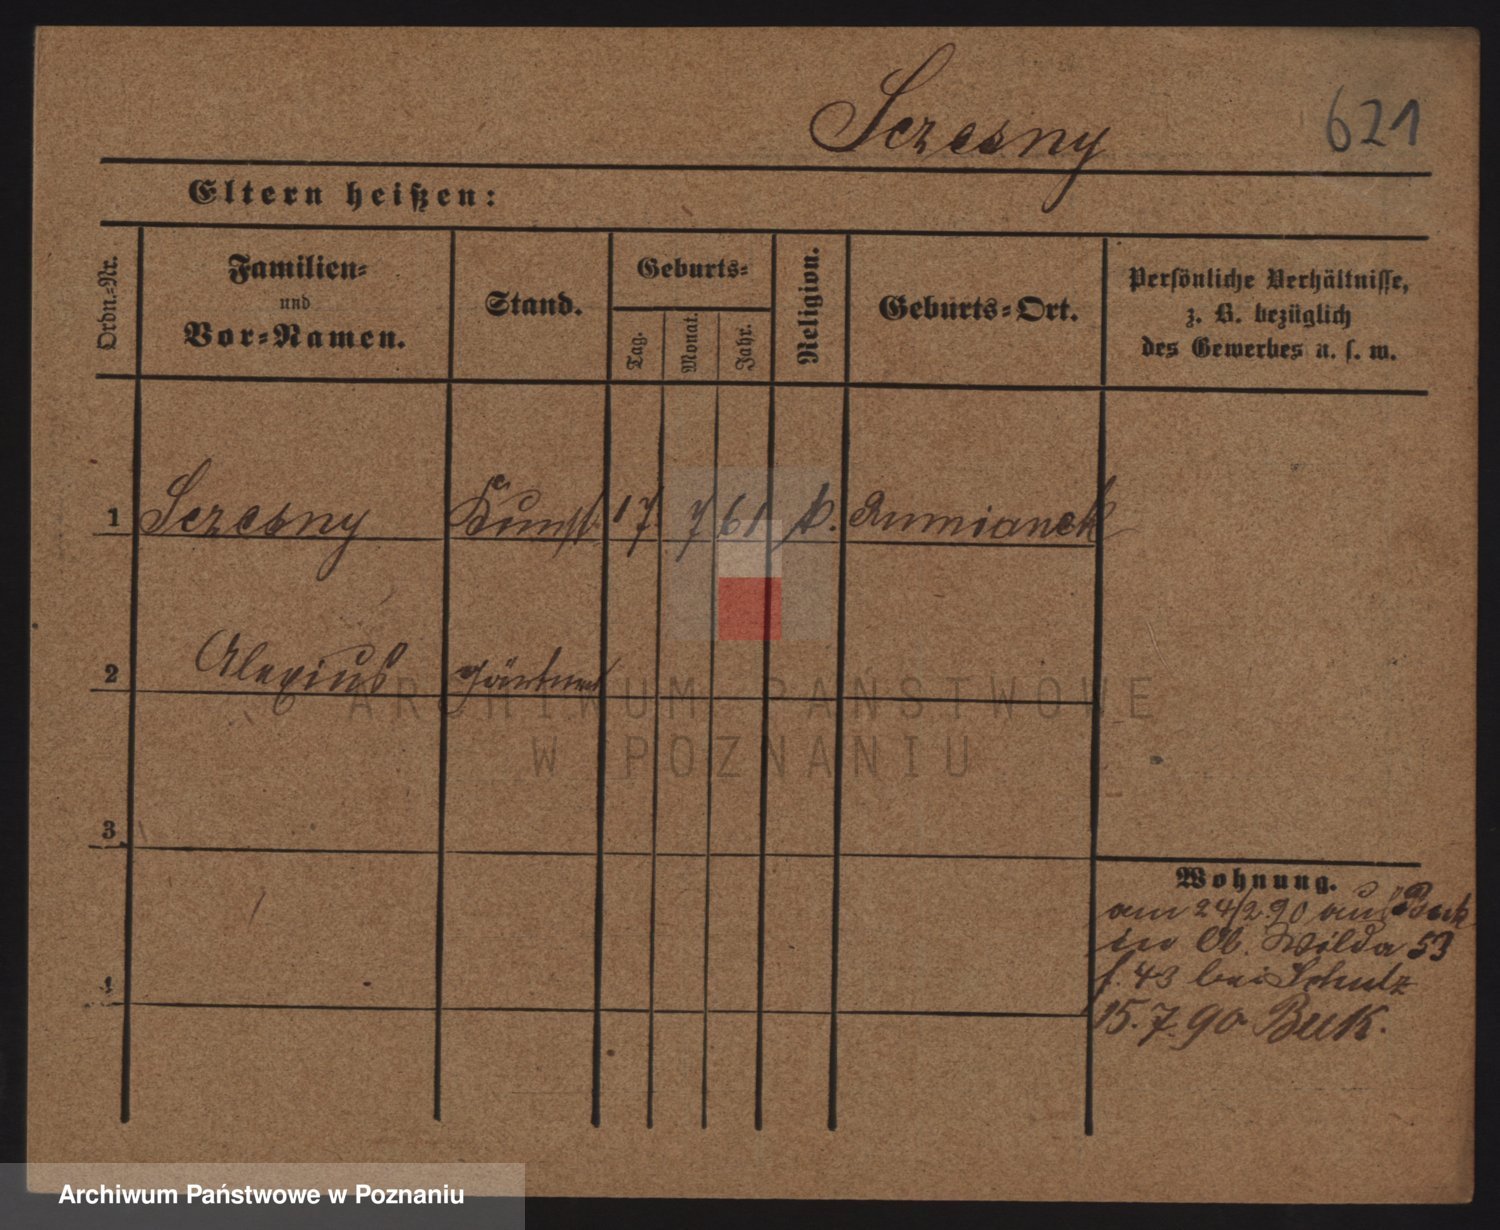 Sczesny
621
Eltern heißen:
Ordn.-Nr.
Familien-
und
Vor-Namen.
Stand.
Geburts-
Tag.
Monat.
Jahr.
Religion.
Geburts-Ort.
Persönliche Verhältnisse,
z. B. bezüglich
des Gewerbes u. s. w.
1 Sczesny Kunst 17 7 61 k. Rumianek
2 Alexius gärtner
3
4
Wohnung.
am 24/2 90 aus Buk
in Ob. Wilda 53
f. 43 bei Schulz
15.7.90 Buk.
ARCHIWUM PAŃSTWOWE
W POZNANIU
Archiwum Państwowe w Poznaniu